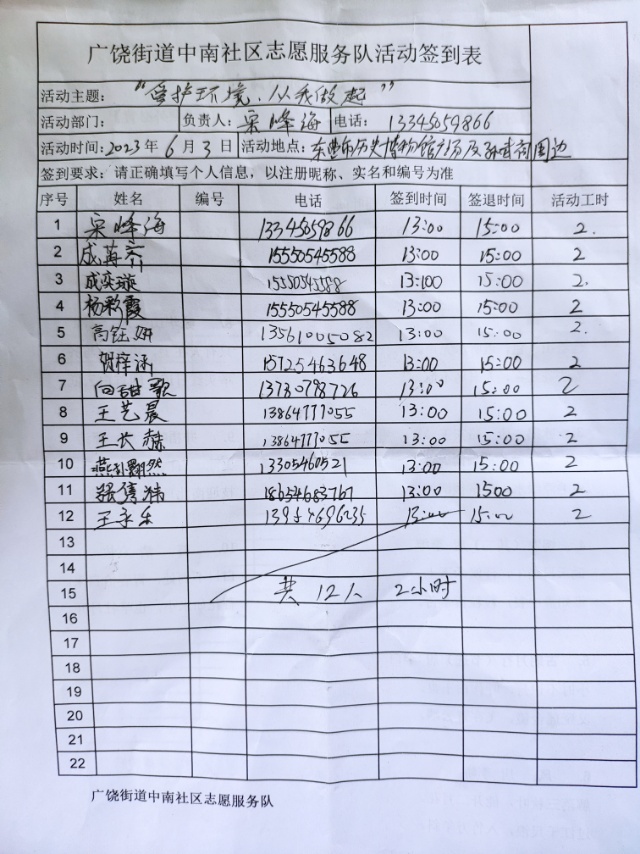 广饶街道中南社区志愿服务队活动签到表
活动主题: “爱护环境、从我做起”
活动部门: 负责人: 宋峰海 电话: 13345059866
活动时间: 2023年6月3日 活动地点: 东营市历史博物馆广场及孙武祠周边
签到要求: 请正确填写个人信息,以注册昵称、实名和编号为准
序号 姓名 编号 电话 签到时间 签退时间 活动工时
1 宋峰海 13345059866 13:00 15:00 2.
2 15550545588 13:00 15:00 2
3 成奕璇 15550545588 13:00 15:00 2.
4 杨彩霞 15550545588 13:00 15:00 2
5 高钰妍 13561005082 13:00 15:00 2.
6 贺梓涵 15725463648 13:00 15:00 2
7 向甜歌 13780798726 13:00 15:00 2
8 王艺晨 13864777055 13:00 15:00 2
9 王长赫 13864777055 13:00 15:00 2
10 13305460521 13:00 15:00 2
11 18654683767 13:00 1500 2
12 王永乐 13:00 15:00 2
13
14
15 共12人 2小时
16
17
18
19
20
21
22
广饶街道中南社区志愿服务队